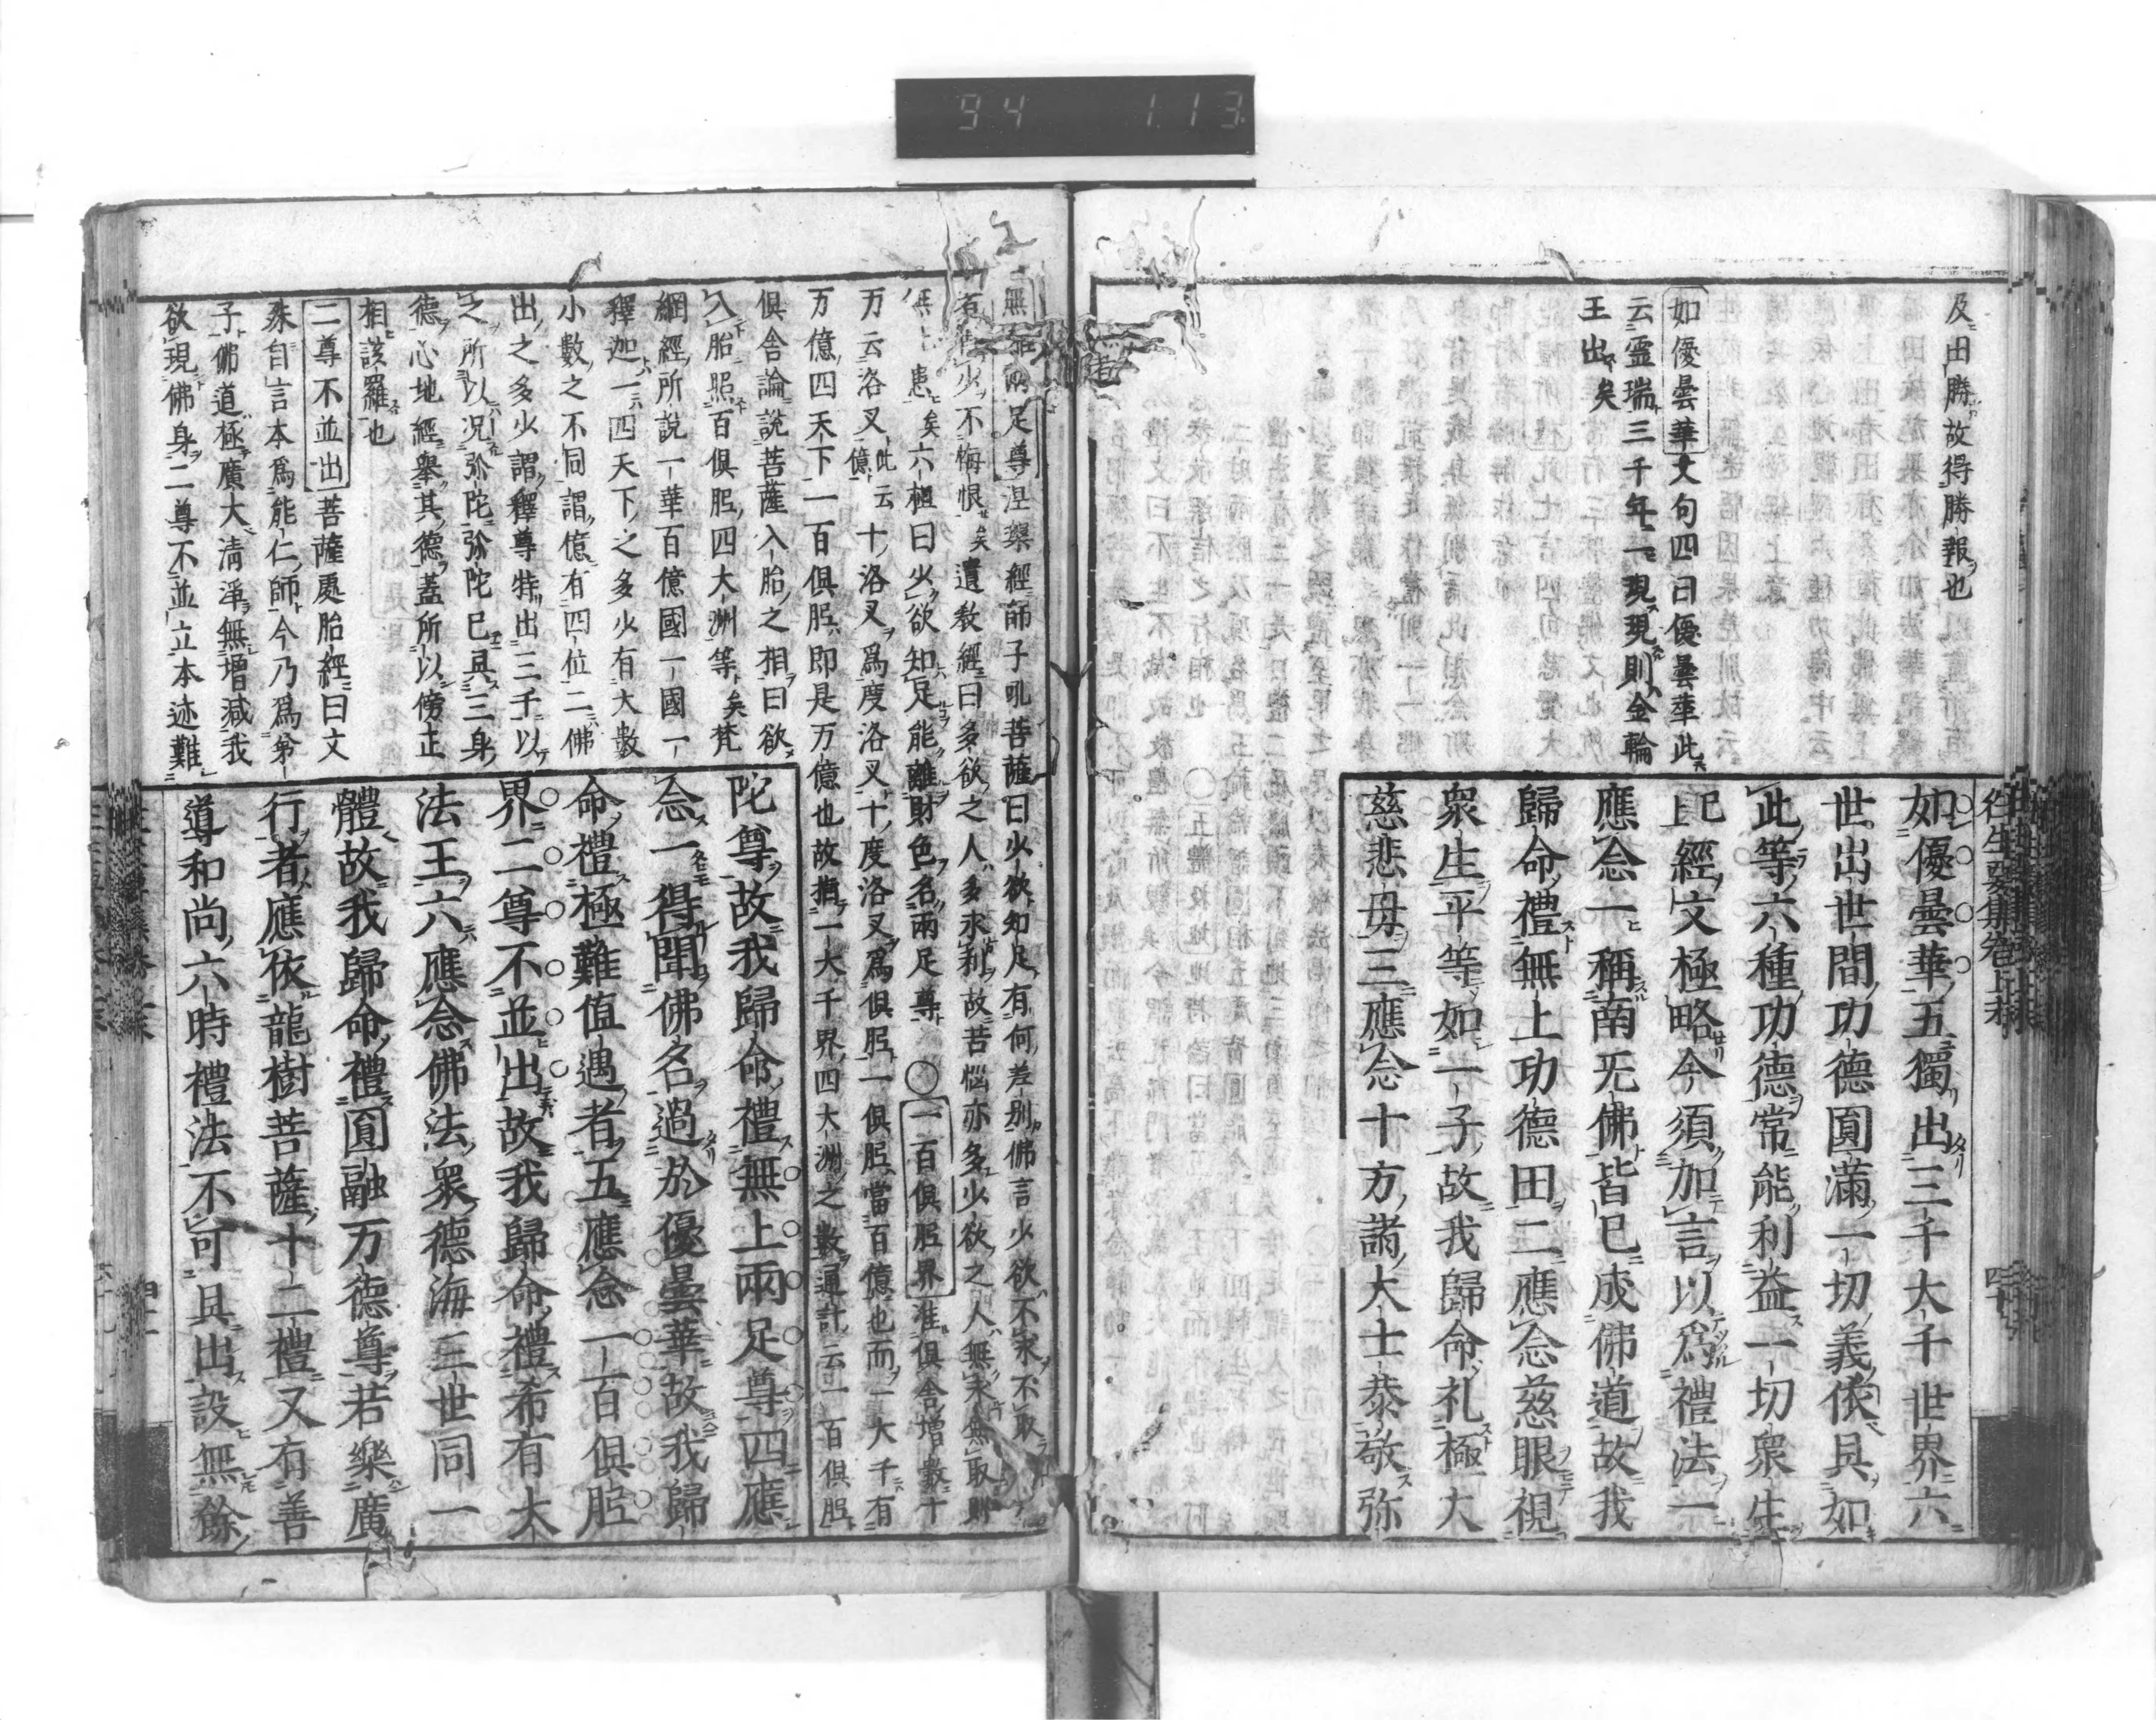 94 113
及田勝故得勝報也
如優曇華文句四曰優曇華此
云霊瑞三千年一現現則金輪
王出矣
往生要集卷上末
如優曇華五獨出三千大千世界六
世出世間功德圓滿一切義依具如
此等六種功德常能利益一切衆生
已上經文極略今須加言以爲禮法一
應念一稱南无佛皆已成佛道故我
歸命禮無上功德田二應念慈眼視
衆生平等如一子故我歸命礼極大
慈悲母三應念十方諸大士恭敬弥
無上兩足尊涅槃經師子吼菩薩曰少欲知足有何差別佛言少欲不求不取
少不悔恨矣遺教經曰多欲之人多求利故苦惱亦多少欲之人無求無取則
無此患矣六祖曰少欲知足能離財色名兩足尊 〇一百俱胝界准俱舍増數十
万云洛叉此云億十洛叉爲度洛叉十度洛叉爲俱胝一俱胝當百億也而一大千有
万億四天下一百俱胝即是万億也故指一大千界四大洲之數運計云一百俱胝
俱舍論説菩薩入胎之相曰欲
入胎照百俱胝四大洲等矣梵
網經所説一華百億國一國一
釋迦一四天下之多少有大數
小數之不同謂億有四位二佛
出之多少謂釋尊特出三千以
之所以况弥陀弥陀已具三身
德心地經舉其德蓋所以傍正
相該羅也
二尊不並出菩薩處胎經曰文
殊自言本爲能仁師今乃爲弟
子佛道極廣大淸淨無增減我
欲現佛身二尊不並立本迹難
陀尊故我歸命禮無上兩足尊四應
念一得聞佛名過於優曇華故我歸
命禮極難値遇者五應念一百俱胝
界二尊不並出故我歸命禮希有大
法王六應念佛法衆德海三世同一
體故我歸命禮圓融万德尊若樂廣
行者應依龍樹菩薩十二禮又有善
導和尚六時禮法不可具出設無餘